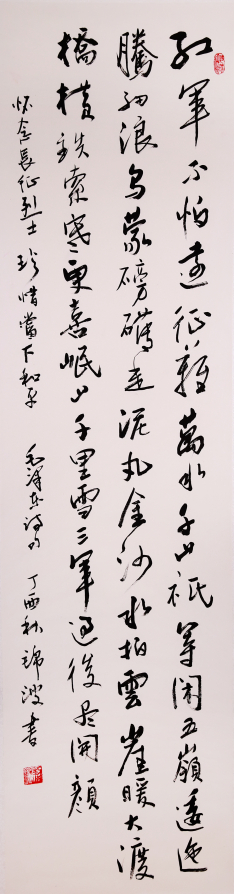 红军不怕远征难萬水千山祇等闲五嶺逶迤
騰细浪乌蒙磅礴走泥丸金沙水拍雲崖暖大渡
橋横铁索寒更喜岷山千里雪三軍过後尽開颜
怀念長征烈士 珍惜當下和平 毛泽东诗句 丁酉秋 锦波書